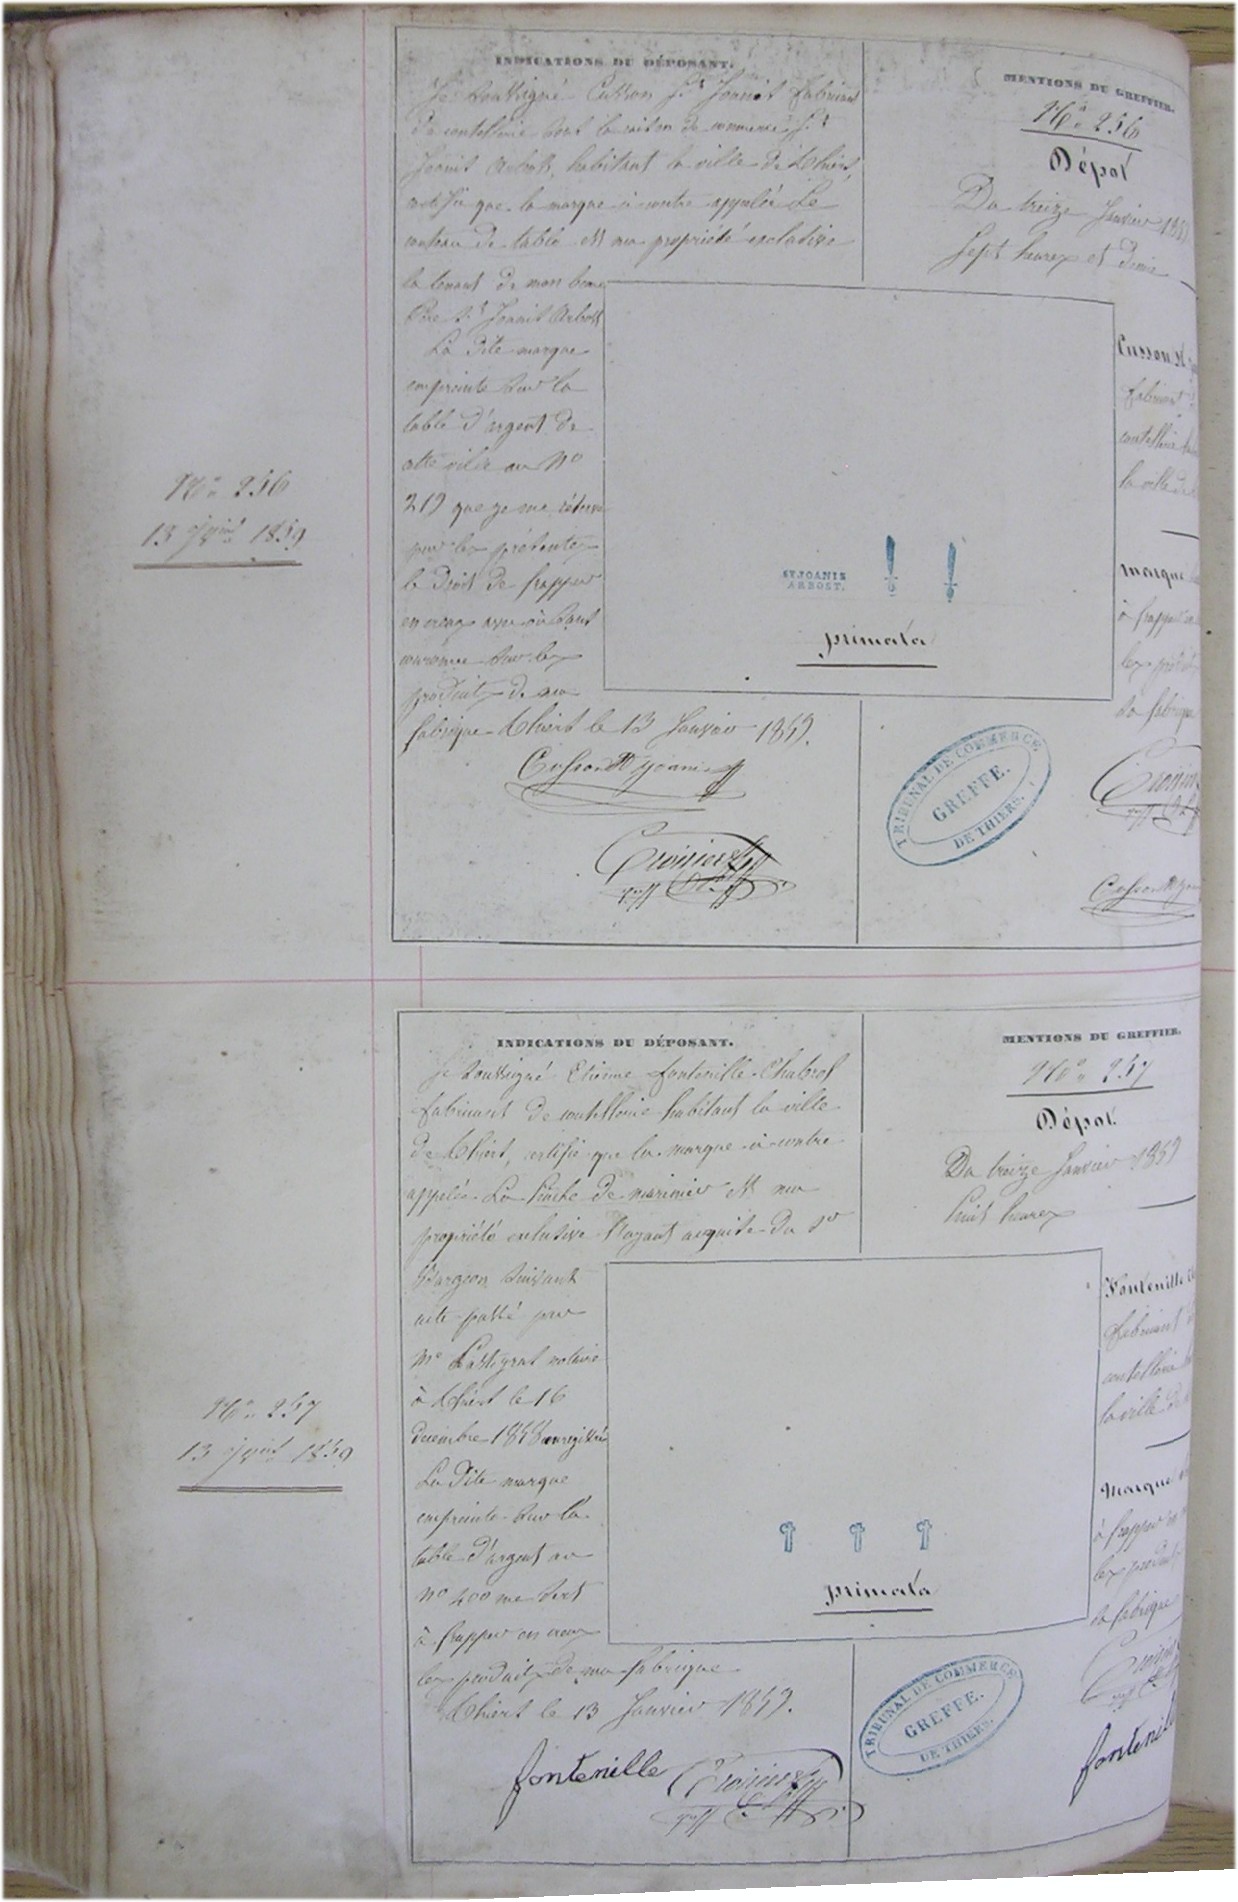 N° 256
13 janv. 1859
INDICATIONS DU DÉPOSANT.
Je soussigné Cusson St Joanis fabricant
de coutellerie dont la raison de commerce St
Joanis Arbost, habitant la ville de Thiers,
certifie que la marque ci contre appelée Le
couteau de table est ma propriété exclusive
la tenant de mon beau
Père St Joanis Arbost
La dite marque
empreinte sur la
table d'argent de
cette ville au N°
219 que je me réserve
par les présentes
le droit de frapper
en creux avec ou sans
couronne sur les
produits de ma
fabrique Thiers le 13 Janvier 1859.
Cusson St Joanis
Croizier
MENTIONS DU GREFFIER.
N° 256
Dépot
Du treize Janvier 1859
Sept heures et demie
ST JOANIS
ARBOST.
primata
Cusson St
fabricant
coutellerie
la ville de
marque
à frapper
les produits
sa fabrique
TRIBUNAL DE COMMERCE
GREFFE.
DE THIERS.
Cusson St Joanis
N° 257
13 janv. 1859
INDICATIONS DU DÉPOSANT.
Je soussigné Etienne Fontenille-Chabrol
fabricant de coutellerie habitant la ville
de Thiers, certifie que la marque ci-contre
appelée La fourche de marinier est ma
propriété exclusive l'ayant acquise du Sr
Bargeon suivant
acte passé par
Me notaire
à Thiers le 16
décembre 1858 enregistré
La dite marque
empreinte sur la
table d'argent au
N° 400 me sert
à frapper en creux
les produits de ma fabrique
Thiers le 13 Janvier 1859.
fontenille
MENTIONS DU GREFFIER.
N° 257
Dépot
Du treize Janvier 1859
huit heures
primata
Fontenille
fabricant
coutellerie
la ville de
Marque
à frapper en
les produits
sa fabrique
TRIBUNAL DE COMMERCE
GREFFE.
DE THIERS.
fontenil